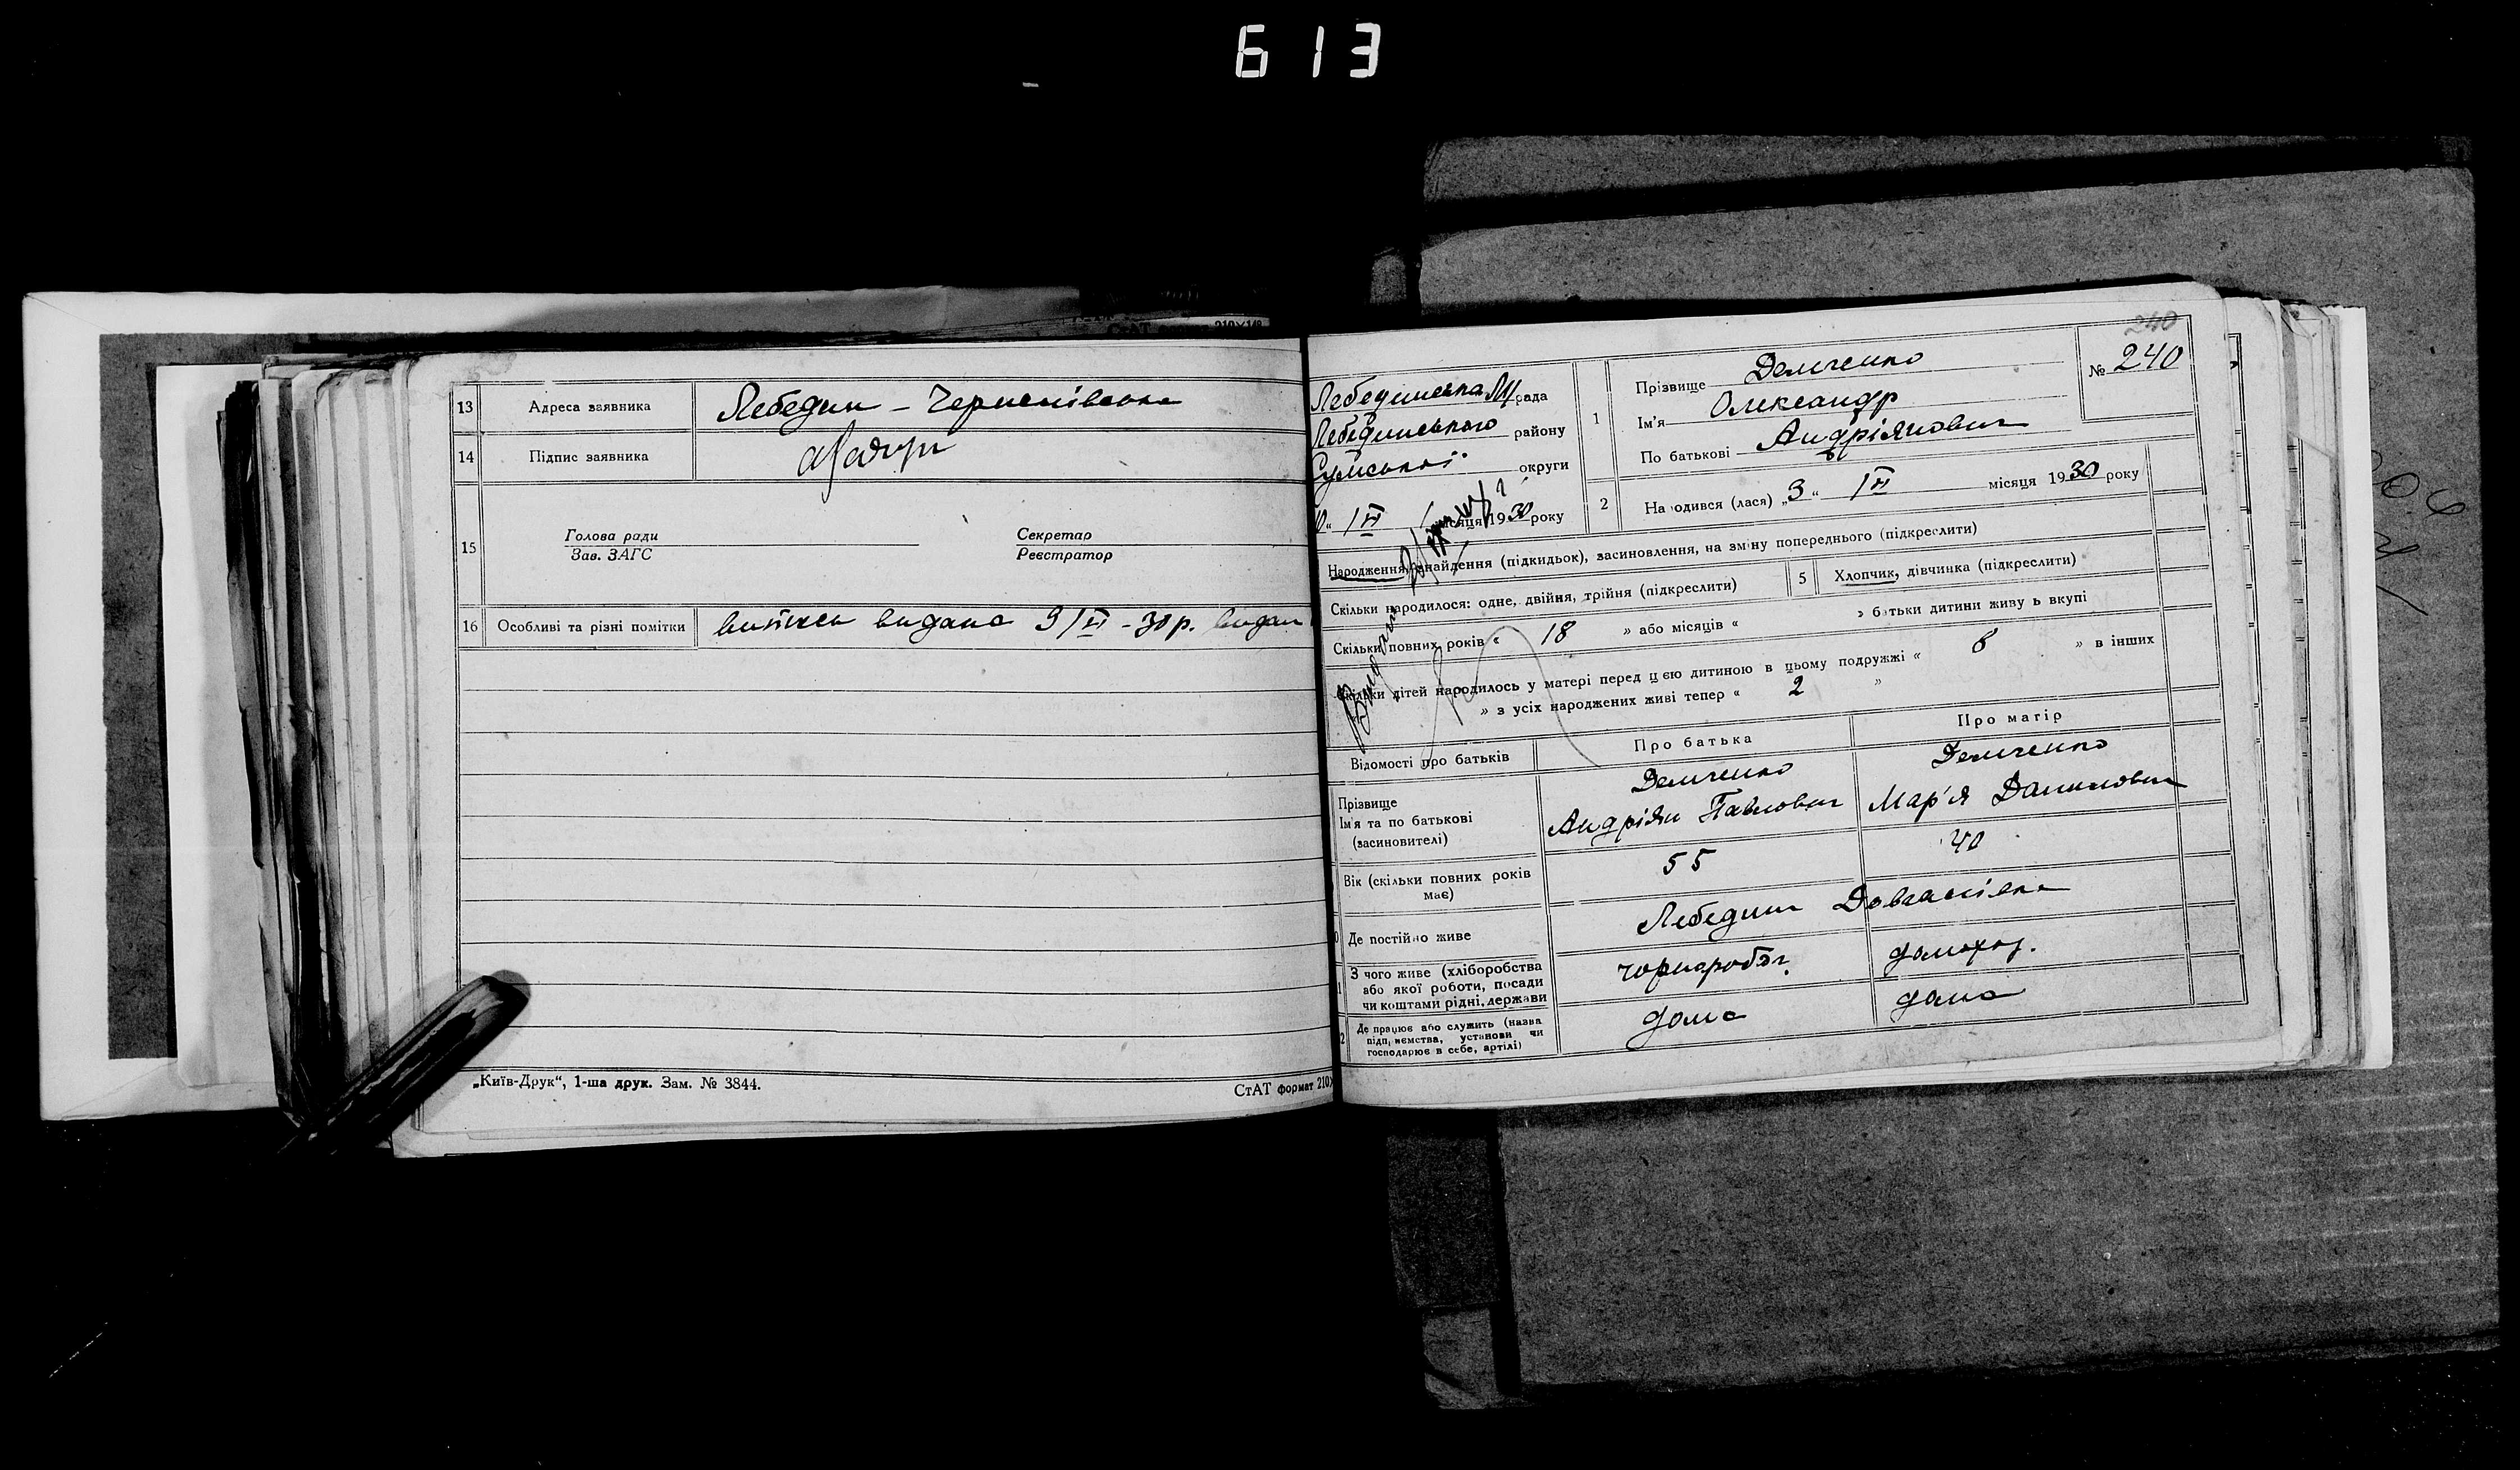 613
13 Адреса заявника Лебедин –
14 Підпис заявника
15 Голова ради Секретар
Зав. ЗАГС Реєстратор
16 Особливі та різні помітки видана 9/IV - 30 р. видан
„Київ-Друк“, 1-ша друк. Зам. № 3844.
СтАТ формат 210×
240
№ 240
Лебединська рада
Лебединського району
Сумської округи
місяця 1930 року
1
Прізвище Демченко
Ім'я Олександр
По батькові Андріянович
2 Народився (лася) „3“ місяця 1930 року
Народження, знайдення (підкидьок), засиновлення, на зміну попереднього (підкреслити)
Скільки народилося: одне, двійня, трійня (підкреслити)
5 Хлопчик, дівчинка (підкреслити)
Скільки повних років « 18 » або місяців « » батьки дитини живуть вкупі
Скільки дітей народилось у матері перед цією дитиною в цьому подружжі « 8 » в інших
» з усіх народжених живі тепер « 2 »
Відомості про батьків Про батька Про матір
Прізвище Демченко Демченко
Ім'я та по батькові Андріян Павлович Мар'я Данилович
(засиновителі)
Вік (скільки повних років має) 55 40
Де постійно живе Лебедин
З чого живе (хліборобства чорнороб. домохоз.
або якої роботи, посади
чи коштами рідні, держави
Де працює або служить (назва дома дома
підприємства, установи чи
господарює в себе, артілі)